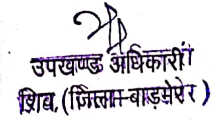 उपखण्ड अधिकारी
शिव, (जिला-बाड़मेर)